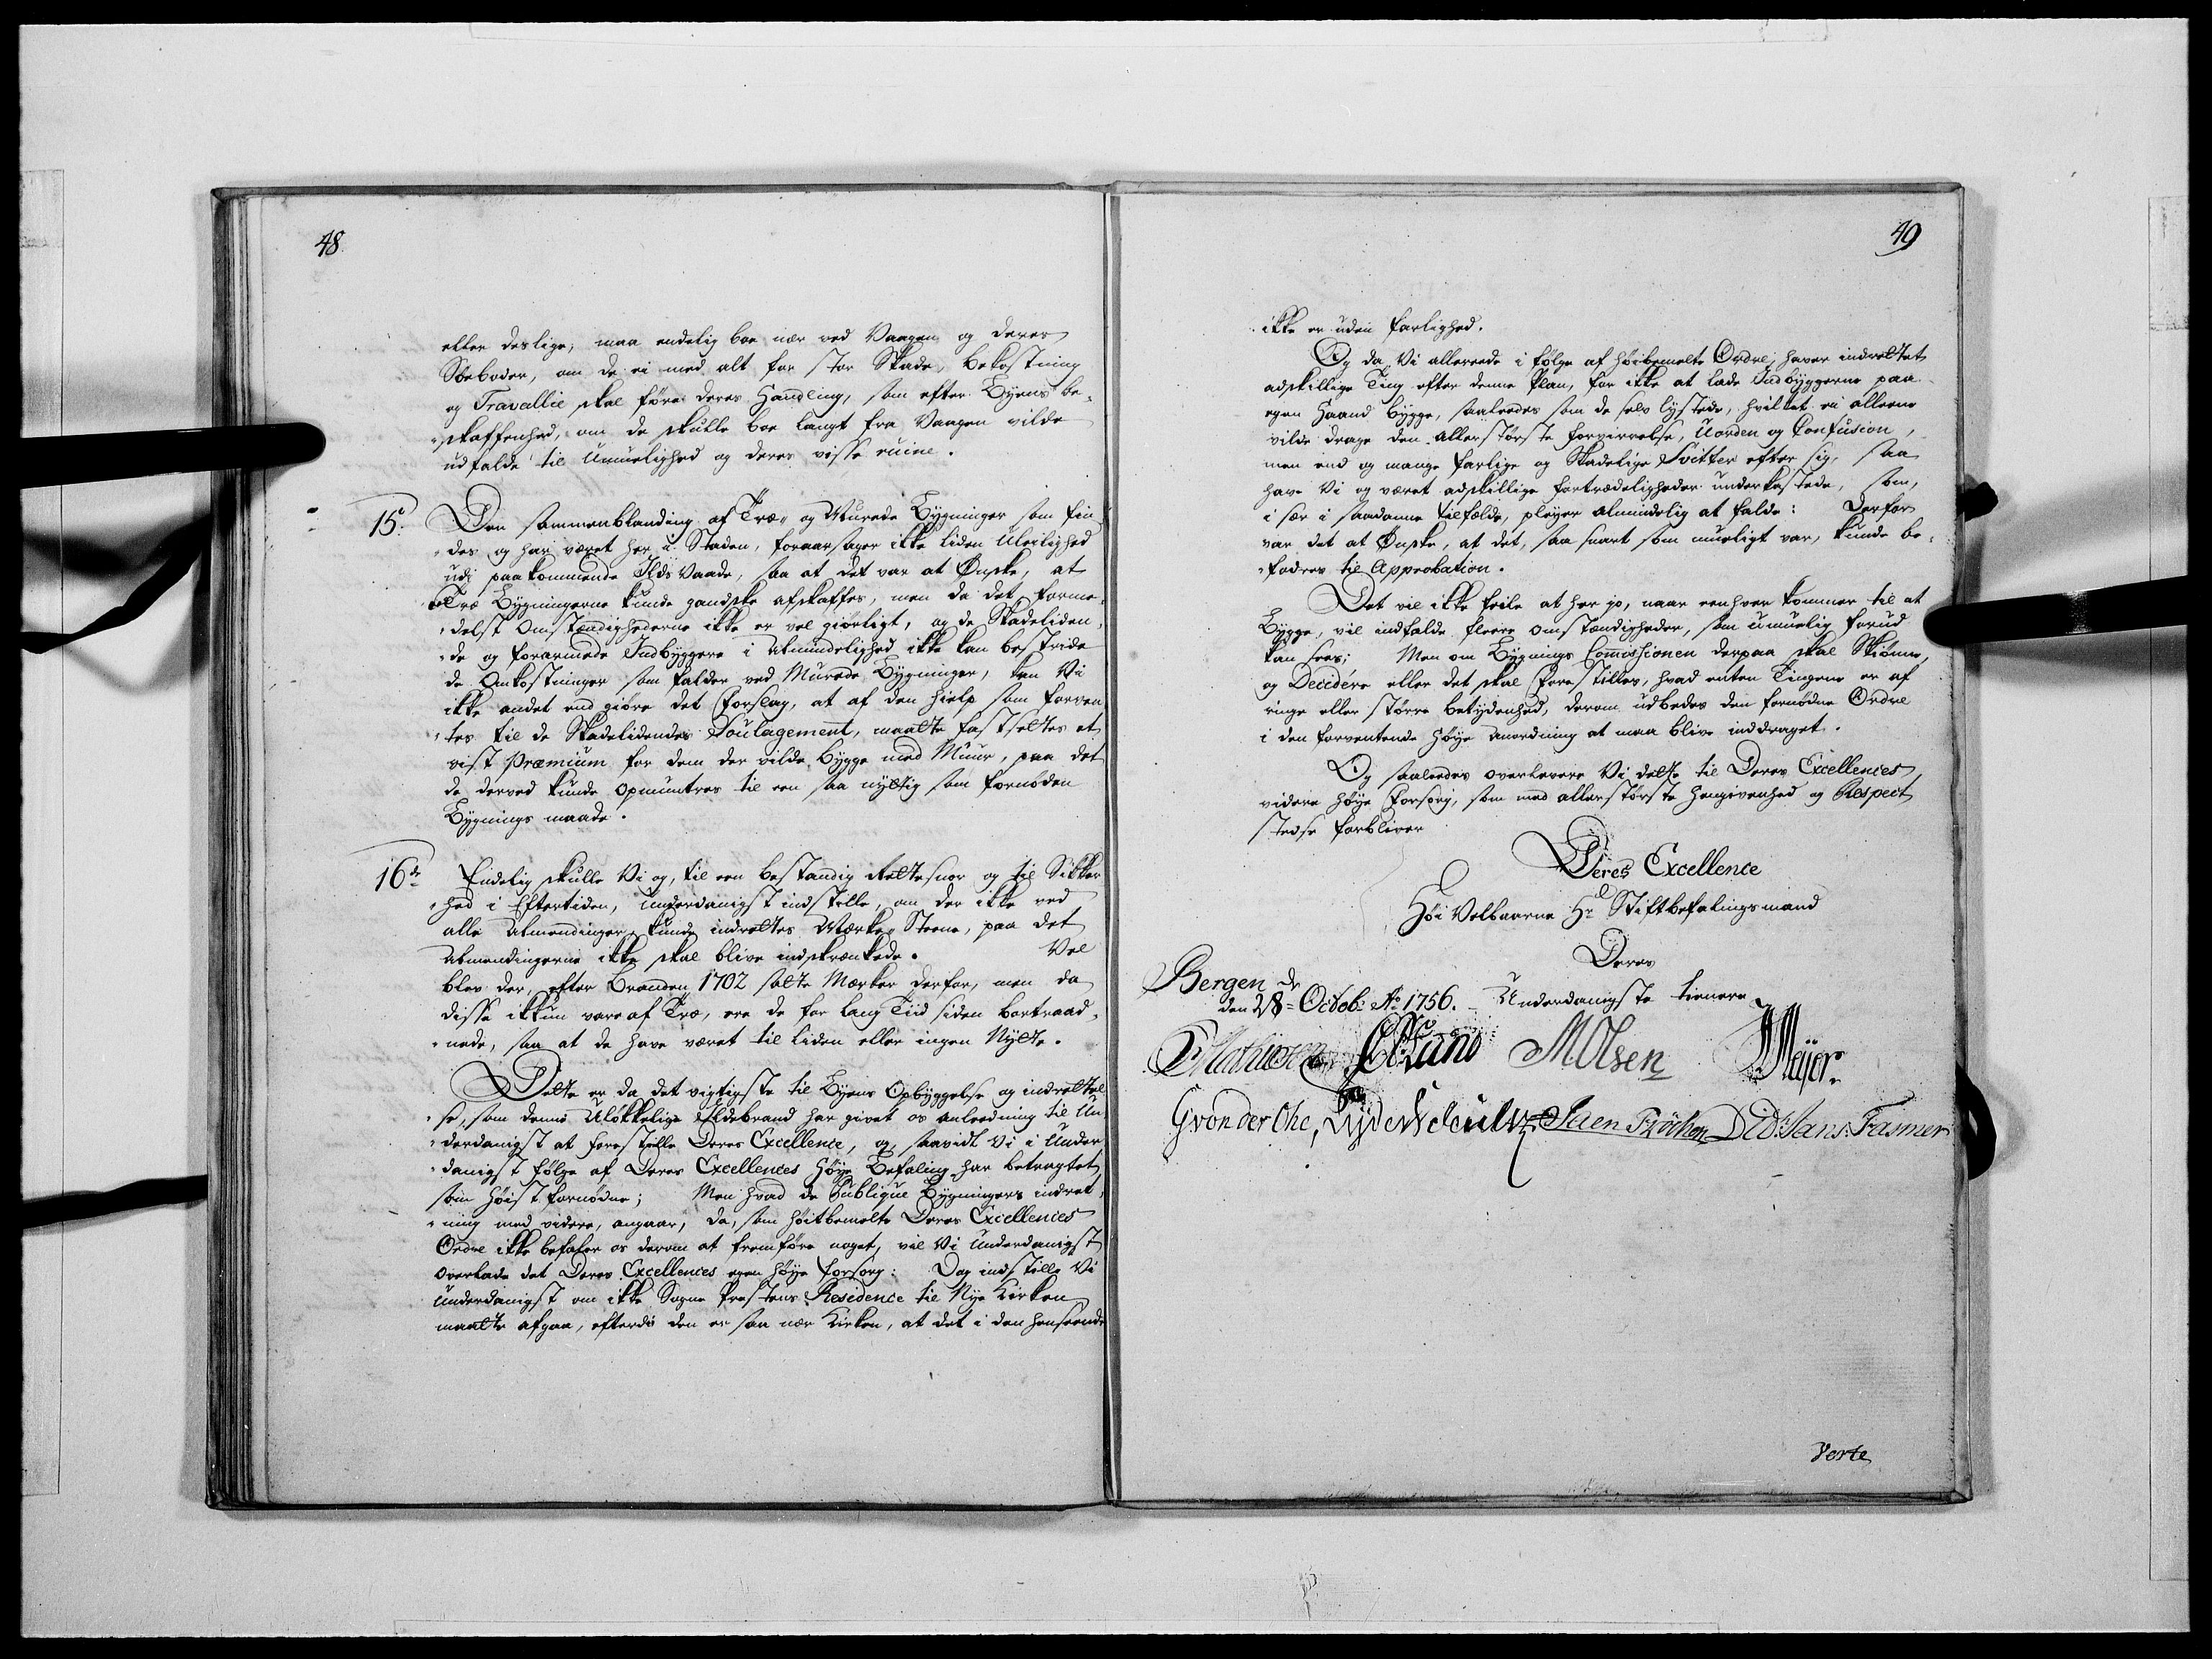 48.
eller deslige, maa endelig boe nær ved Vaagen og deres
Søeboder, om de ei med alt for stor Skade, bekostning
og Travallie skal føre deres Handling, som efter Byens be-
skaffenhed, om de skulle boe langt fra Vaagen vilde
udfalde til Umuelighed og deres visse ruine.
15de Den sammenblanding af Træ- og Murede Bygninger som fin-
des og har været her i Staden, foraarsager ikke liden Uleilighed
udi paakommende Ilds Vaade, saa at det var at Ønske, at
Træ Bygningerne kunde gandske afskaffes, men da det forme-
delst Omstændighederne ikke er vel giørligt, og de Skadeliden-
de og forarmede Indbyggere i Almindelighed ikke kan bestride
de Omkostninger som falder ved Murede Bygninger, kan Vi
ikke andet end giøre det Forslag, at af den Hielp som forven-
tes til de Skadelidendes Soulagement, maatte fastsettes et
vist Præmium for dem der vilde bygge med Muur, paa det
de derved kunde opmuntres til een saa nyttig som fornøden
Bygnings maade.
16de Endelig skulle Vi og, til een bestandig Rettesnor og til Sikker-
hed i Eftertiden, underdanigst indstille, om der ikke ved
alle Almendinger kunde indrettes Mærke Steene, paa det
Almendingerne ikke skal blive indskrænkede. Vel
blev der, efter Branden 1702 satte Mærker derfor, men da
disse ikkun vare af Træ, ere de for lang Tiid siden bortraad-
nede, saa at de have været til liden eller ingen Nytte.
Dette er da det vigtigste til Byens Opbyggelse og indrettel-
se, som denne Ulykkelige Ildebrand har givet os anleedning til Un-
derdanigst at forestille Deres Excellence, og, saavidt Vi i Under-
danigst følge af Deres Excellences Høye Befaling har betragtet
som høist fornødne; Men hvad de Publique Bygningers indret-
ning med videre, angaar, da, som høitbemelte Deres Excellences
Ordre ikke befaler os derom at fremføre noget, vil Vi underdanigst
overlade det Deres Excellences egen høye forsorg: Dog indstille Vi
underdanigst om ikke Sogne Præstens Residence til Nye Kirken
maatte afgaa, efterdi den er saa nær Kirken, at det i den henseende
49
ikke er uden farlighed.
Og da Vi allereede i følge af høibemelte Ordre, haver indrettet
adskillige Ting efter denne Plan, for ikke at lade Indbyggerne paa
egen Haand bygge, saaleedes som de selv lystede, hvilket ei alleene
vilde drage den allerstørste forvirrelse, Uorden og Confusion,
men end og mange farlige og Skadelige Svitter efter sig, saa
have Vi og været adskillige fortrædeligheder underkastede, som,
i sær i saadanne tilfælde, pleyer almindelig at falde: Derfor
var det at Ønske, at det, saa snart som mueligt var, kunde be-
fodres til Approbation.
Det vil ikke feile at her jo, naar eenhver kommer til at
Bygge, vil indfalde fleere omstændigheder, som umuelig forud
kan sees; Men om Bygnings Commissionen derpaa skal Skiønne,
og Decidére eller det skal forestilles, hvad enten Tingene er af
ringe eller større betydenhed, derom udbedes den fornødne Ordre
i den forventende Høye Anordning at maa blive inddraget.
Og saaleedes overlevere Vi dette til Deres Excellences
videre høye Forsorg, som med allerstørste hengivenhed og Respect
stedse forbliver
Deres Excellence
Høi Velbaarne Hr Stiftbefalingsmand
Deres
Bergen
den 28de Octob: Ao 1756. Underdanigste tienere
Mathiesen Lund M. Olsen Meÿer.
G von der Ohe, Jaen Fröchen Did: Jans: Fasmer
Verte